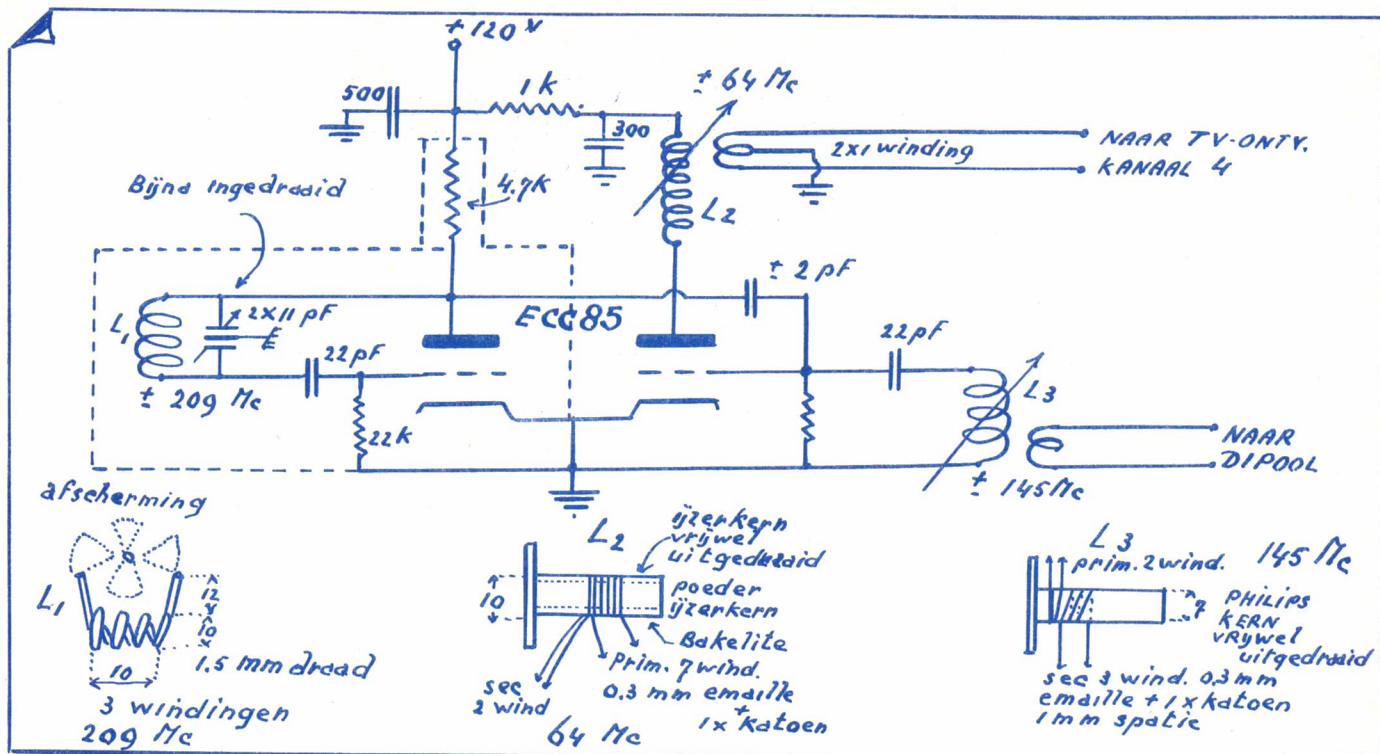 + 120 V
500
1 k
± 64 Mc
300
2x1 winding
NAAR TV-ONTV.
KANAAL 4
4.7K
L2
Bijna ingedraaid
± 2 pF
L1
2x11 pF
ECC85
22 pF
22 pF
± 209 Mc
22K
L3
NAAR
DIPOOL
± 145 Mc
afscherming
L1
12
10
10
1.5 mm draad
3 windingen
209 Mc
L2
ijzerkern
vrijwel
uitgedraaid
10
poeder
ijzerkern
Bakelite
Prim. 7 wind.
0.3 mm emaille
+
1x katoen
sec
2 wind
64 Mc
L3
145 Mc
prim. 2 wind.
7
PHILIPS
KERN
vrijwel
uitgedraaid
sec 3 wind. 0.3 mm
emaille + 1 x katoen
1 mm spatie